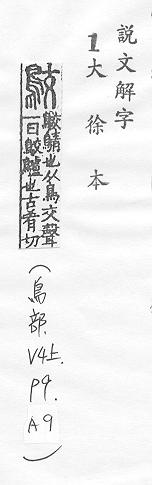 說文解字
1大徐本
鵁 鵁鶄也从鳥交聲
一曰鵁鸕也古肴切
(鳥部. V4上. P9. A9)